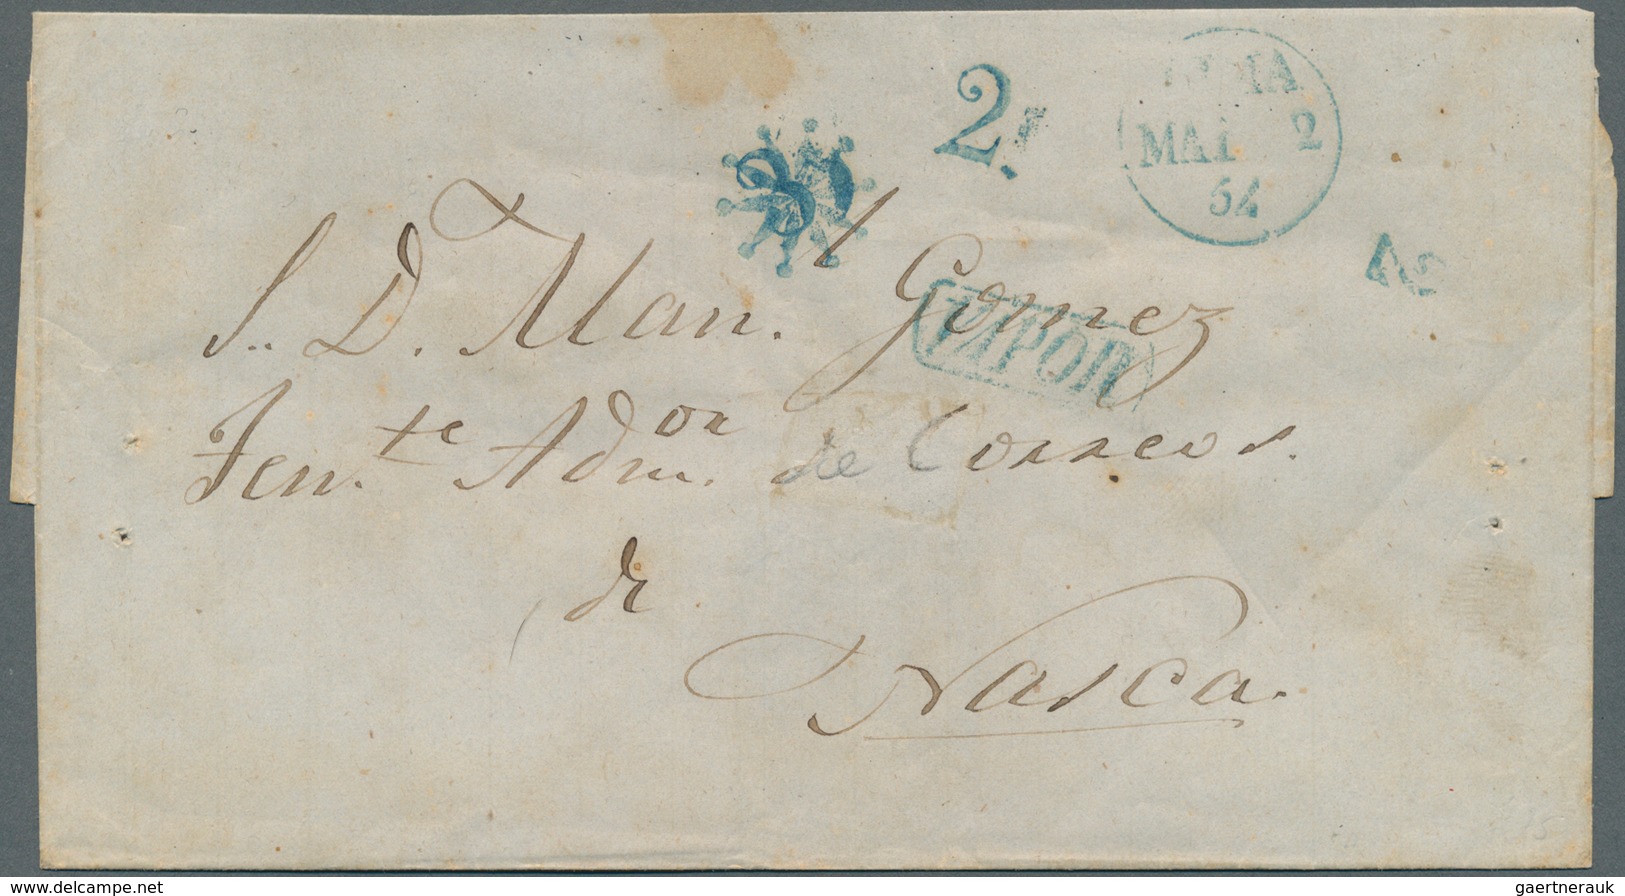 2
MAI 2
54
30
VAPOR
S. D. Man.l Gomez
Ten.te Adm.or de Correos
de
Nasca.
www.delcampe.net
gaertnerauk